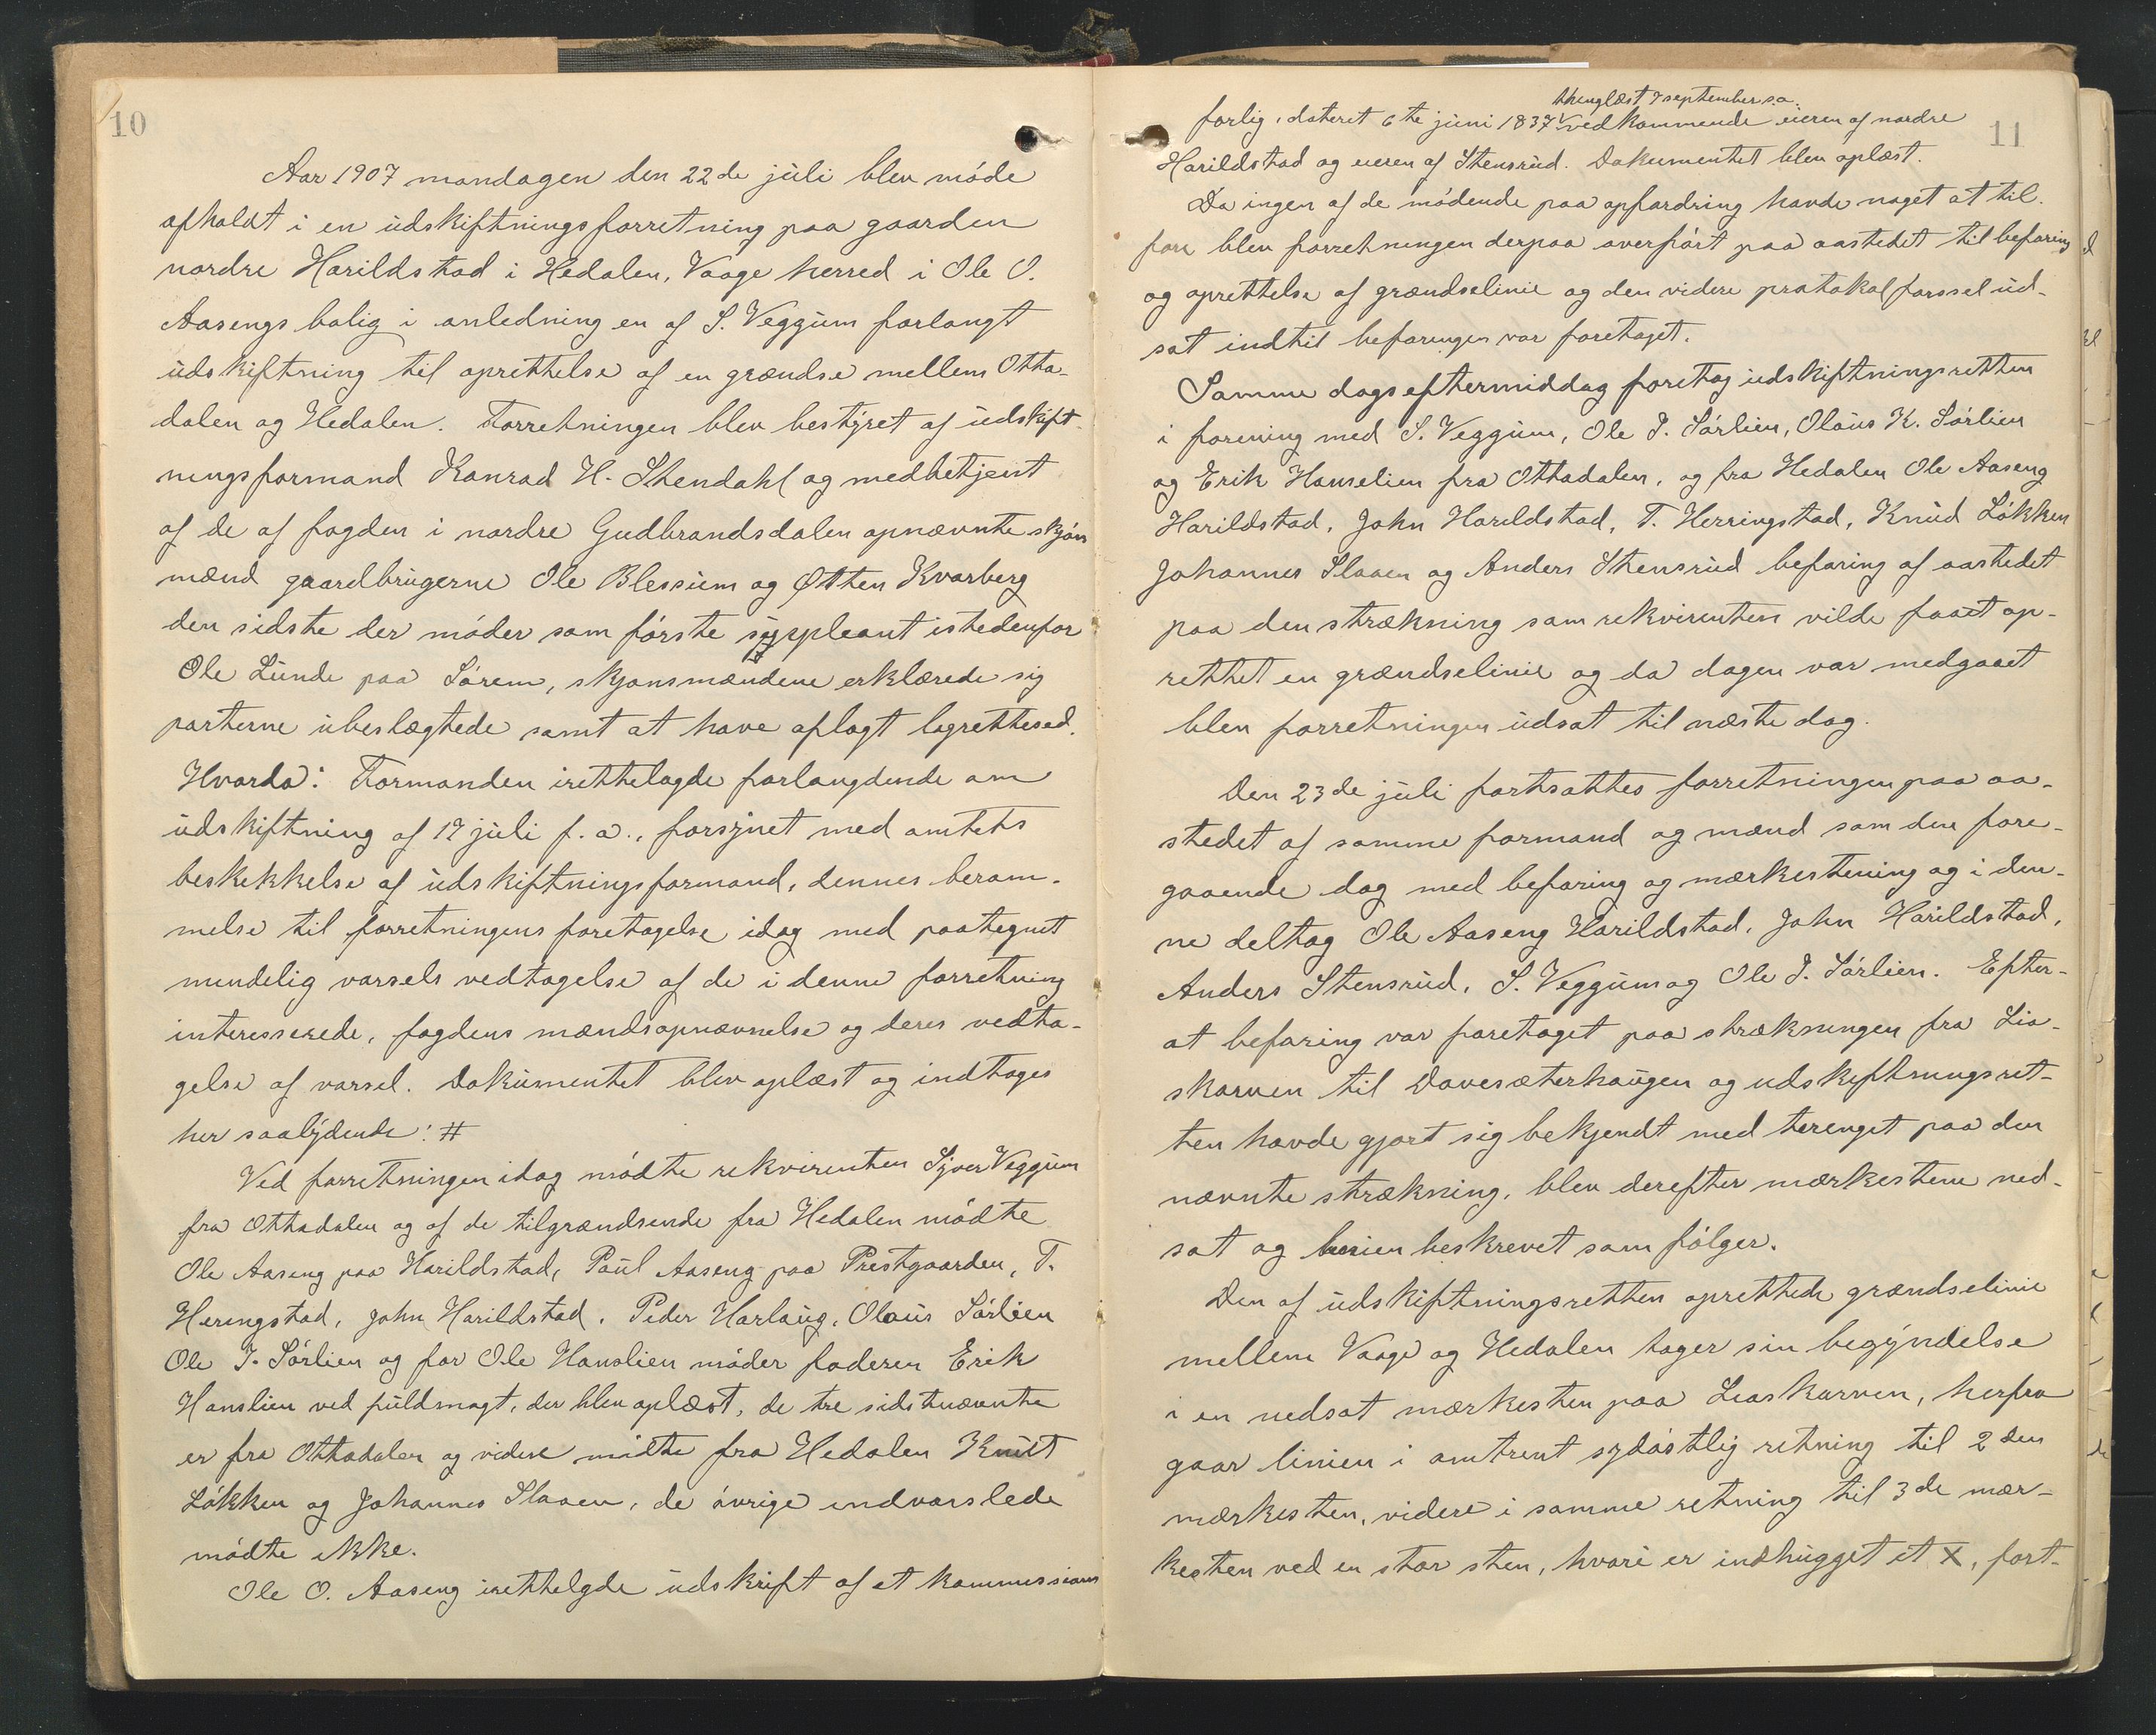 10
Aar 1907 mandagen den 22de juli blev møde
afholdt i en udskiftningsforretning paa gaarden
nordre Harildstad i Hedalen, Vaage herred i Ole O.
Aasengs bolig i anledning en af S. Veggum forlangt
udskiftning til oprettelse af en grændse mellem Otta-
dalen og Hedalen. Forretningen blev bestyret af udskift-
ningsformand Konrad H. Stendahl og medbetjent
af de af fogden i nordre Gudbrandsdalen opnævnte skjøns
mænd gaardbrugerne Ole Blessum og Otten Kvarberg
den sidste der møder som første suppleant istedenfor
Ole Lunde paa Sørem, skjønsmændene erklærede sig
parterne ubeslægtede samt at have aflagt lagrettesed.
Hvorda: Formanden irettelagde forlangdende om
udskiftning af 19 juli f. a., forsynet med amtets
beskekkelse af udskiftningsformand, dennes beram-
melse til forretningens foretagelse idag med paategnet
mundelig varsels vedtagelse af de i denne forretning
interesserede, fogdens mændsopnævnelse og deres vedta-
gelse af varsel. Dokumentet blev oplæst og indtages
her saalydende: #
Ved forretningen idag mødte rekvirenten Sjver Veggum
fra Ottadalen og af de tilgrændsende fra Hedalen mødte
Ole Aaseng paa Harildstad, Paul Aaseng paa Prestgaarden, T.
Heringstad, John Harildstad, Peder Harlaug, Olaus Sørlien
Ole J. Sørlien og for Ole Hanslien møder faderen Erik
Hanslien ved fuldmagt, der blev oplæst, de tre sidstnævnte
er fra Ottadalen og videre mødte fra Hedalen Knut
Løkken og Johannes Slaaen, de øvrige indvarslede
mødte ikke.
Ole O. Aaseng irettelgde udskrift af et kommissions
11
thinglæst 7 september s.a.
forlig, dateret 6te juni 1837 vedkommende eieren af nordre
Harildstad og eieren af Stensrud. Dokumentet blev oplæst.
Da ingen af de mødende paa opfordring havde noget at til-
føre blev forretningen derpaa overført paa aastedet til befaring
og oprettelse af grændselinie og den videre protokolførssel ud-
sat indtil befaringen var foretaget.
Samme dags eftermiddag foretog udskiftningsretten
i forening med S. Veggum, Ole J. Sørlien, Olaus K. Sørlien
og Erik Hanselien fra Ottadalen, og fra Hedalen Ole Aaseng
Harildstad, John Harildstad, T. Herringstad, Knud Løkken
Johannes Slaaen og Anders Stensrud befaring af aastedet
paa den strækning som rekvirenten vilde faaet op-
rettet en grændselinie og da dagen var medgaaet
blev forretningen udsat til næste dag.
Den 23de juli fortsattes forretningen paa aa-
stedet af samme formand og mænd som den fore-
gaaende dag med befaring og mærkestening og i den-
ne deltog Ole Aaseng Harildstad, John Harildstad,
Anders Stensrud, S. Veggum og Ole J. Sørlien. Efter-
at befaring var foretaget paa strækningen fra Lia-
skarven til Dovesæterhaugen og udskiftningsret-
ten havde gjort sig bekjendt med terenget paa den
nævnte strækning, blev derefter mærkestene ned-
sat og linien beskrevet som følger.
Den af udskiftningsretten oprettede grændselinie
mellem Vaage og Hedalen tager sin begyndelse
i en nedsat mærkesten paa Liaskarven, herfra
gaar linien i omtrent sydøstlig retning til 2den
mærkesten, videre i samme retning til 3de mær-
kesten ved en stor sten, hvori er indhugget et X, fort-